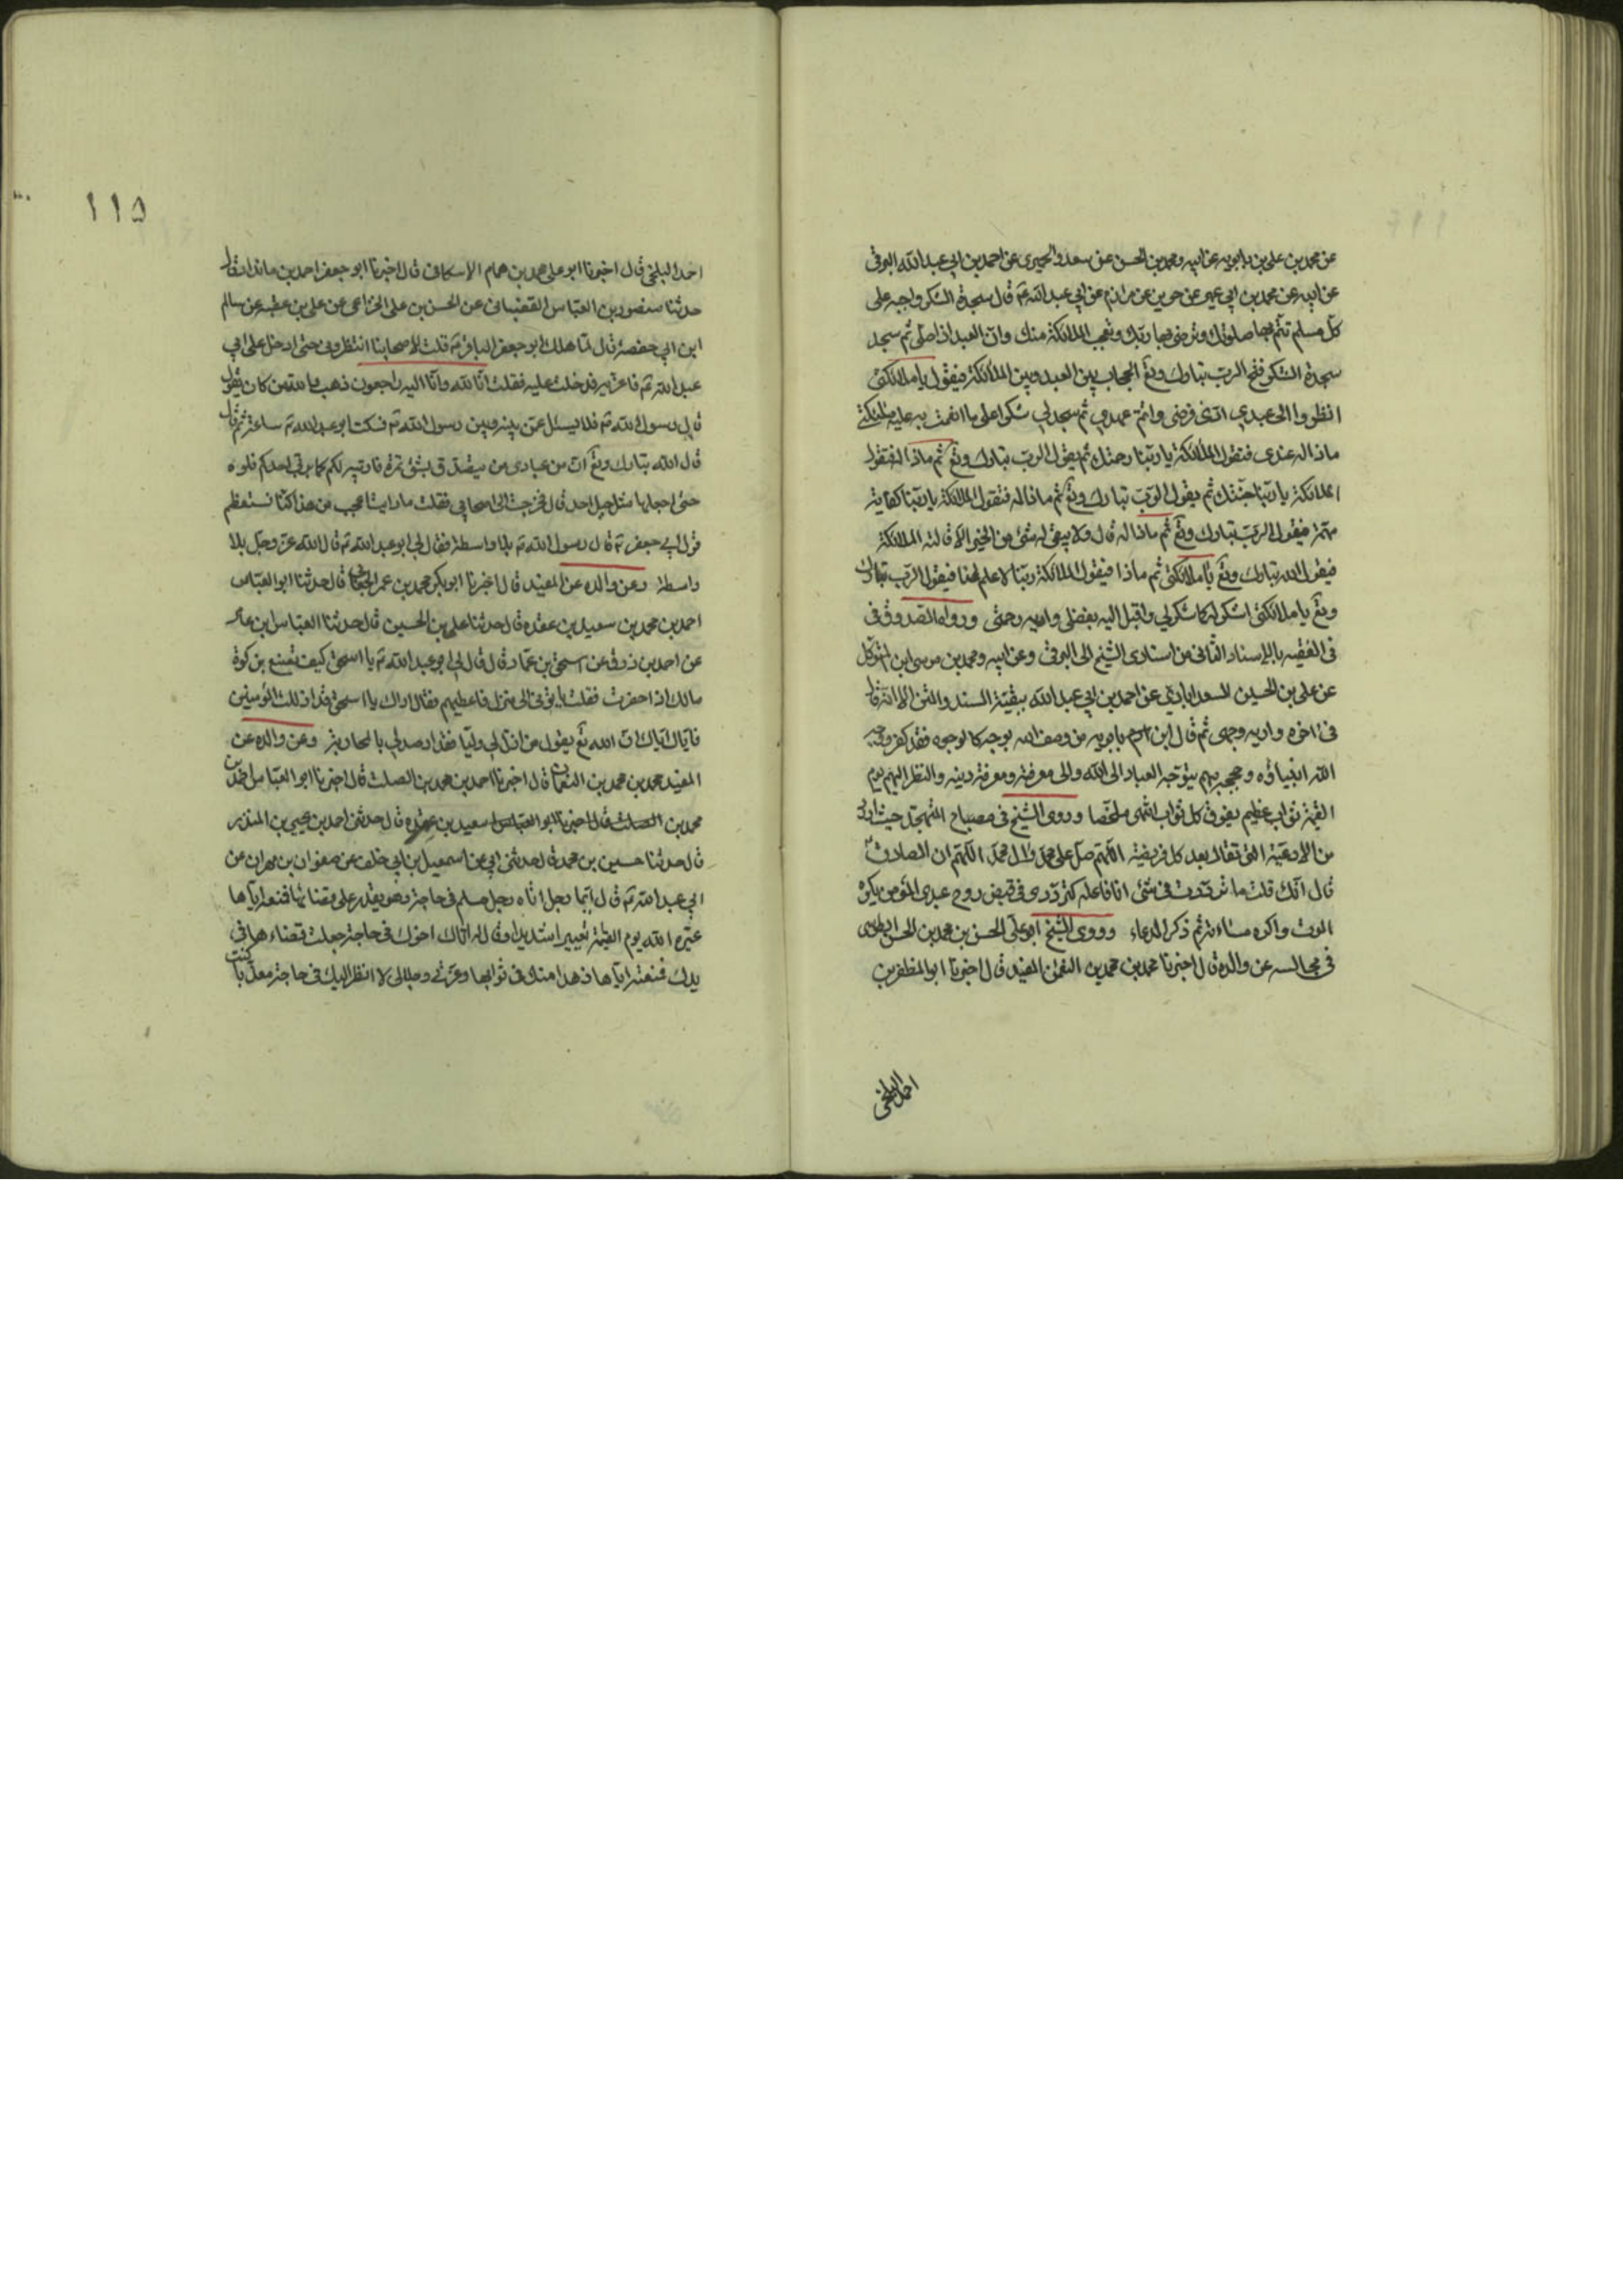 عن محمد بن علی بن بابویه عن ابیه ومحمد بن الحسن عن سعد والحمیری عن احمد بن ابی عبد الله البرقی
عن ابیه عن محمد بن ابی عمیر عن حریز عن مرازم عن ابی عبد الله ع قال سجدة الشکر واجبه علی
کل مسلم تتم بها صلوتک وترضی بها ربک وتعجب الملائکة منک وان العبد اذا صلی ثم سجد
سجدة الشکر فتح الرب تبارک وتع الحجاب بین العبد وبین الملائکة فیقول یا ملائکتی
انظروا الی عبدی ادی فرضی واتم عهدی ثم سجد لی شکرا علی ما انعمت به علیه ملائکتی
ماذا له عندی فتقول الملائکة یا ربنا رحمتک ثم یقول الرب تبارک وتع ثم ماذا له فتقول
الملائکة یا ربنا جنتک ثم یقول الرب تبارک وتع ثم ماذا له فتقول الملائکة یا ربنا کفایة
مهمه فیقول الرب تبارک وتع ثم ماذا له قال ولا یبقی له شئ من الخیر الا قالته الملائکة
فیقول الله تبارک وتع یا ملائکتی ثم ماذا فیقول الملائکة ربنا لا علم لنا فیقول الرب تبارک
وتع یا ملائکتی اشکر له کما شکر لی واقبل الیه بفضلی واریه رحمتی ورواه الصدوق فی
فی الفقیه بالاسناد الثانی من اسنادی الشیخ الی البرقی وعن ابیه ومحمد بن موسی ابن المتوکل
عن علی بن الحسین السعد ابادی عن احمد بن ابی عبد الله ببقیة السند والمتن الا انه قال
فی اخره واریه وجهی ثم قال ابن بابویه من وصف الله بوجه کالوجوه فقد کفر ووجه
الله انبیاؤه وحججه بهم یتوجه العباد الی الله والی معرفته ومعرفة دینه والنظر الیهم یوم
القیمة ثواب عظیم یفوق کل ثواب انتهی ملخصا وروی الشیخ فی مصباح المتهجد حیث اورد
من الادعیة التی تقال بعد کل فریضة اللهم صل علی محمد وال محمد اللهم ان الصادق
قال انک قلت ما ترددت فی شئ انا فاعله کترددی فی قبض روح عبدی المؤمن یکره
الموت واکره مساءته ثم ذکر الدعاء وروی الشیخ ابو علی الحسن بن محمد بن الحسن الطوسی
فی مجالسه عن والده قال اخبرنا محمد بن محمد بن النعمن المفید قال اخبرنا ابو المظفر بن
احمد البلخی
١١٥
احمد البلخی قال اخبرنا ابو علی محمد بن همام الاسکافی قال اخبرنا ابو جعفر احمد بن مابنداد قال
حدثنا منصور بن العباس القصبانی عن الحسن بن علی الخزاعی عن علی بن عقبه عن سالم
ابن ابی حفصه قال لما هلک ابو جعفر الباقر ع قلت لاصحابنا انتظرونی حتی ادخل علی ابی
عبد الله ع فاعزیه فدخلت علیه فقلت انا لله وانا الیه راجعون ذهب والله من کان یقول
قال رسول الله ص فلا یسئل عمن بینه وبین رسول الله ص فسکت ابو عبد الله ع ساعة ثم قال
قال الله تبارک وتع ان من عبادی من یتصدق بشئ تمره فاربیه لکم کما یربی احدکم فلوه
حتی اجعلها مثل جبل احد قال فخرجت الی اصحابی فقلت ما رایت اعجب من هذا کنا نستعظم
قول ابی جعفر ع قال رسول الله ص بلا واسطة فقال لی ابو عبد الله ع قال الله عز وجل بلا
واسطة وعن والده عن المفید قال اخبرنا ابو بکر محمد بن عمر الجعابی قال حدثنا ابو العباس
احمد بن محمد بن سعید بن عقده قال حدثنا علی بن الحسین قال حدثنا العباس ابن عامر
عن احمد بن رزق عن اسحق بن عمار قال قال لی ابو عبد الله ع یا اسحق کیف تصنع بزکوة
مالک اذا حضرت فقلت یاتونی الی منزل فاعطیهم فقال اراک یا اسحق قد اذللت المؤمنین
فایاک ایاک ان الله تع یقول من اذل لی ولیا فقد ارصد لی بالمحاربة وعن والده عن
المفید محمد بن محمد بن النعمان قال اخبرنا احمد بن محمد بن الصلت قال اخبرنا ابو العباس احمد بن
محمد بن الصلت قال اخبرنا ابو العباس سعید بن عقده قال حدثنی احمد بن یحیی بن المنذر
قال حدثنا حسین بن محمد قال حدثنی ابی عن اسمعیل بن ابی خلف عن صفوان بن مهران عن
ابی عبد الله ع قال ایما رجل اتاه رجل مسلم فی حاجة وهو یقدر علی قضائها فمنعه ایاها
عیره الله یوم القیمة تعییرا شدیدا وقال له اتاک اخوک فی حاجة جعلت قضاءها فی
یدک فمنعته ایاها زهدا منک فی ثوابها وعزتی وجلالی لا انظر الیک فی حاجة معذبا کنت